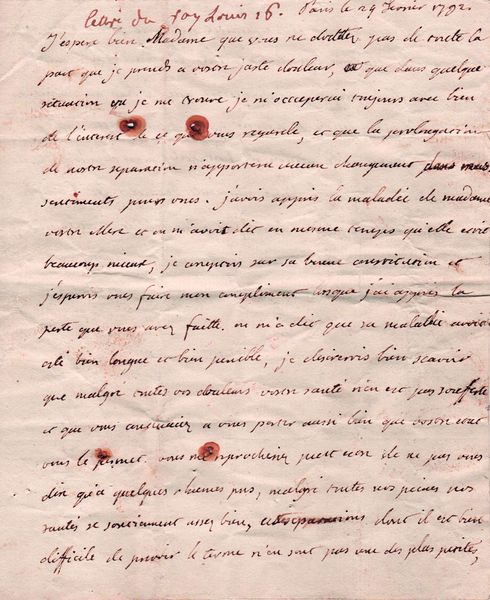 lettre du roy Louis 16. Paris le 29 fevrier 1792.
J'espere bien Madame que vous ne doutez pas de toute la
part que je prends a votre juste douleur, et que dans quelque
situation ou je me trouve je m'occuperai toujours avec bien
de l'interet de ce qui vous regarde, et que la prolongation
de notre separation n'apportera aucun changement dans mes
sentiments pour vous. j'avois appris la maladie de madame
votre Mere et on m'avoit dit en mesme temps qu'elle etoit
beaucoup mieux, je comptois sur sa bonne constitution et
j'esperois vous faire mon compliment lorsque j'ai appris la
perte que vous avez faitte. on m'a dit que sa maladie avoit
eté bien longue et bien penible, je desirerois bien scavoir
que malgré toutes vos douleurs votre santé n'en est pas
et que vous continuez a vous porter aussi bien que votre etat
vous le permet. vous me reprocheriez peut etre de ne pas vous
dire qu'a quelques rhumes pres, malgré toutes nos peines nos
santes se soutiennent assez bien, dont il est bien
difficile de prevoir le terme n'en sont pas une des plus petites,